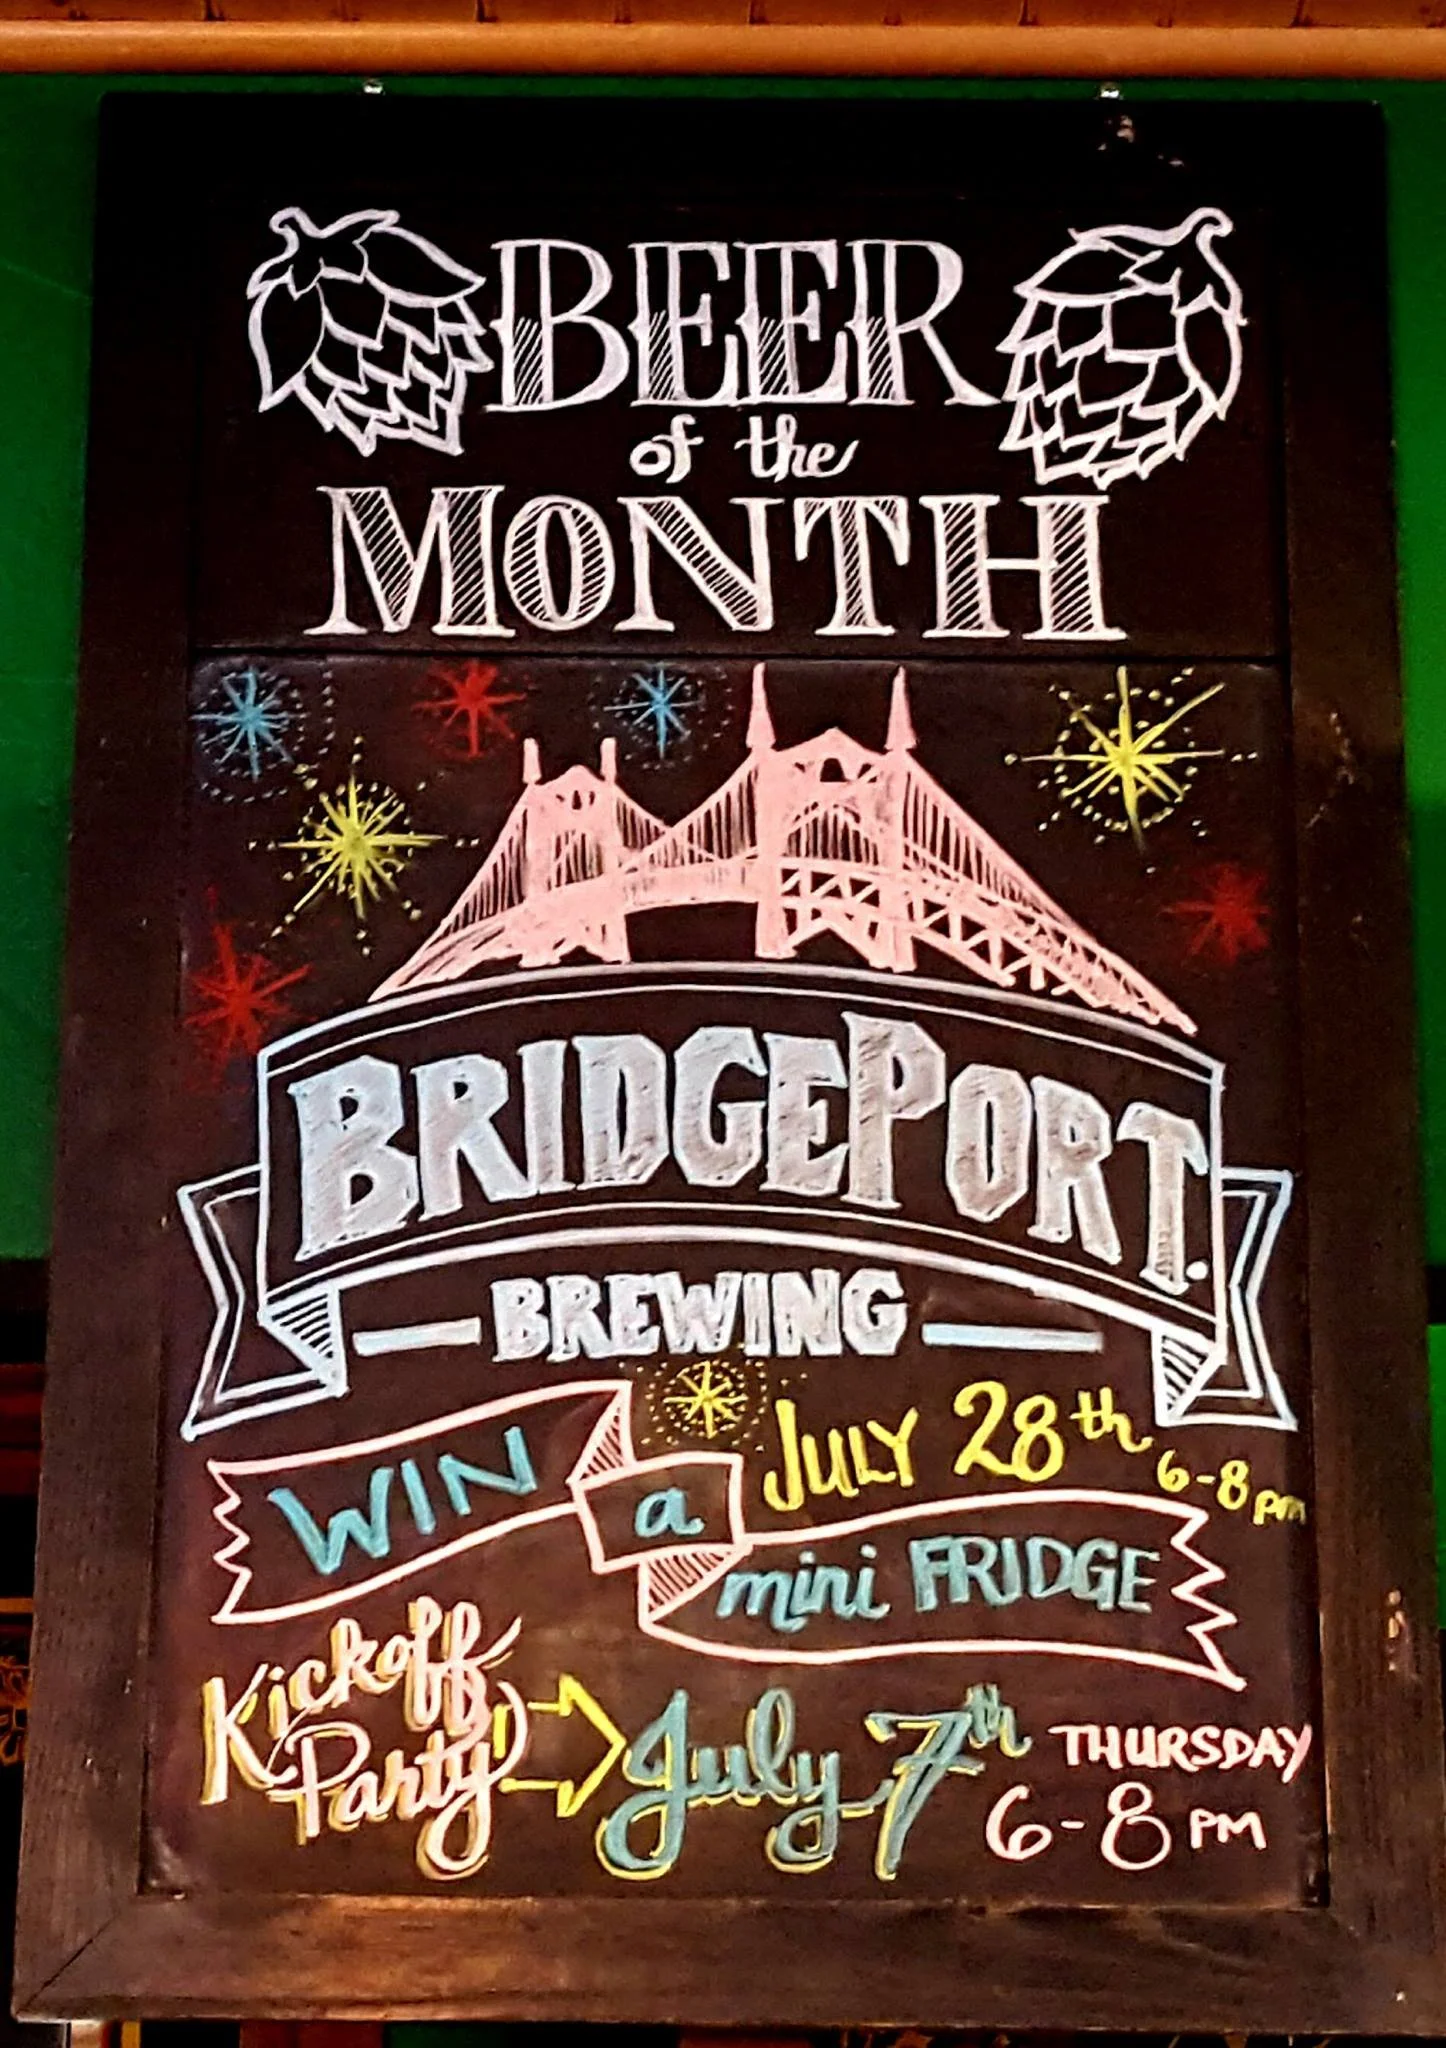 BEER
of the
MONTH
BRIDGEPORT.
BREWING
WIN a mini FRIDGE
JULY 28th 6-8pm
Kickoff
Party
July 7th THURSDAY
6-8 PM